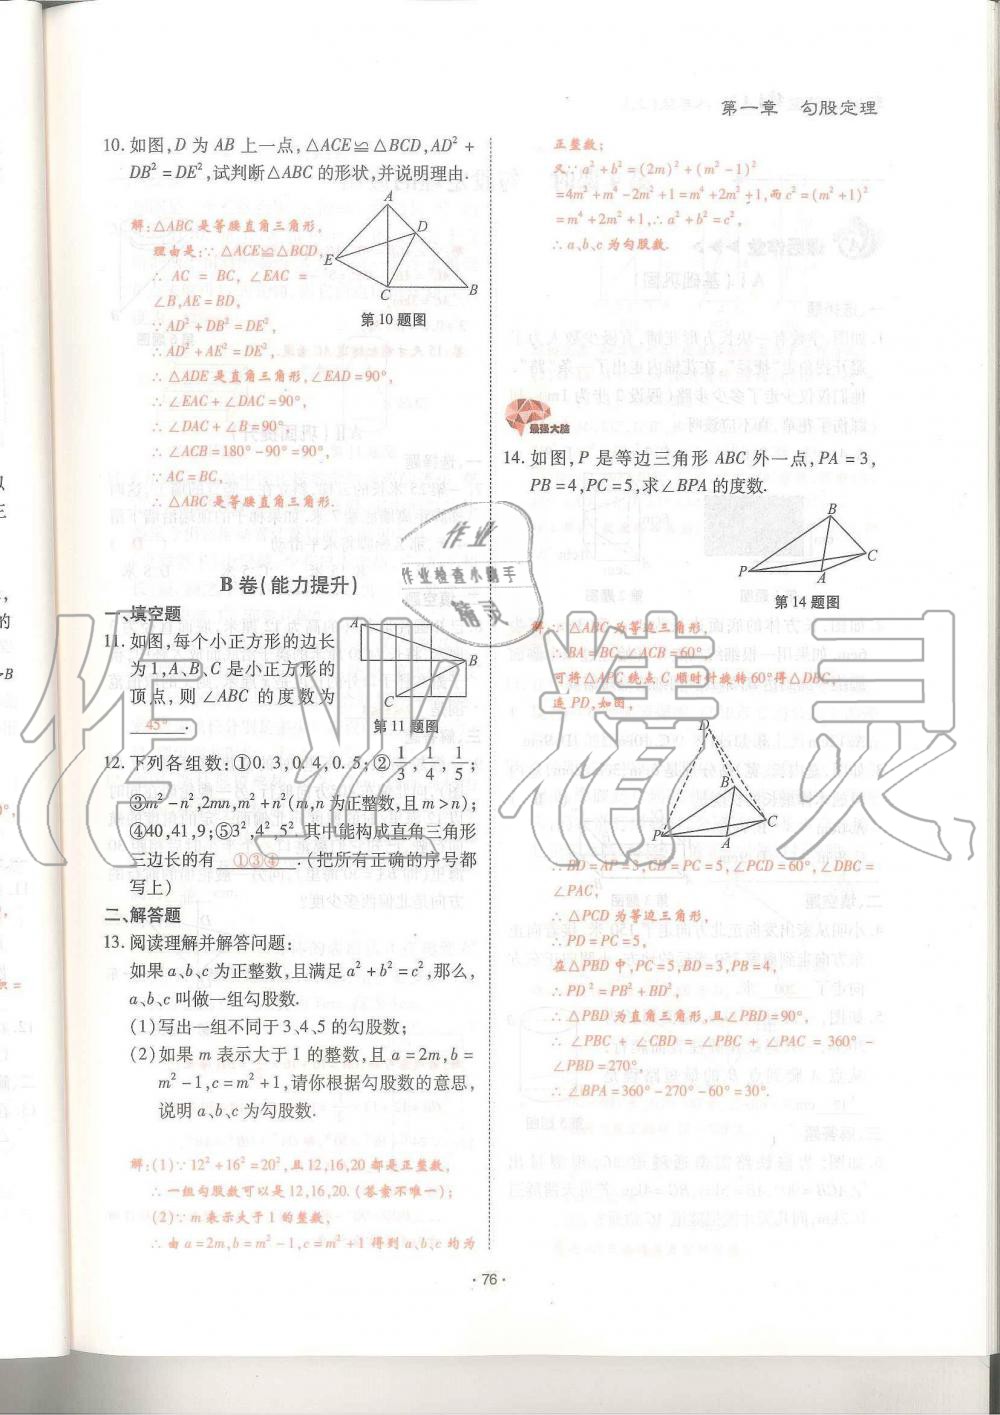 第一章 勾股定理
10. 如图,D 为 AB 上一点,△ACE≌△BCD,AD²+
DB²=DE²,试判断△ABC 的形状,并说明理由.
解:△ABC 是等腰直角三角形,
理由是:∵△ACE≌△BCD,
∴ AC = BC, ∠EAC =
∠B,AE=BD,
∵AD²+DB²=DE²,
∴AD²+AE²=DE²,
∴△ADE 是直角三角形,∠EAD=90°,
∴∠EAC+∠DAC=90°,
∴∠DAC+∠B=90°,
∴∠ACB=180°-90°=90°,
∵AC=BC,
∴△ABC 是等腰直角三角形.
A
D
E
C
B
第 10 题图
B 卷(能力提升)
一、填空题
11. 如图,每个小正方形的边长
为 1,A、B、C 是小正方形的
顶点,则∠ABC 的度数为
45° .
A
B
C
第 11 题图
12. 下列各组数:①0.3,0.4,0.5;②1/3,1/4,1/5;
③m²-n²,2mn,m²+n²(m,n 为正整数,且 m>n);
④40,41,9;⑤3²,4²,5². 其中能构成直角三角形
三边长的有 ①③④ .(把所有正确的序号都
写上)
二、解答题
13. 阅读理解并解答问题:
如果 a、b、c 为正整数,且满足 a²+b²=c²,那么,
a、b、c 叫做一组勾股数.
(1)写出一组不同于 3、4、5 的勾股数;
(2)如果 m 表示大于 1 的整数,且 a=2m,b=
m²-1,c=m²+1,请你根据勾股数的意思,
说明 a、b、c 为勾股数.
解:(1)∵12²+16²=20²,且 12,16,20 都是正整数,
∴一组勾股数可以是 12,16,20.(答案不唯一);
(2)∵m 表示大于 1 的整数,
∴由 a=2m,b=m²-1,c=m²+1 得到 a、b、c 均为
正整数;
又∵a²+b²=(2m)²+(m²-1)²
=4m²+m⁴-2m²+1=m⁴+2m²+1,而 c²=(m²+1)²
=m⁴+2m²+1,∴a²+b²=c²,
∴a、b、c 为勾股数.
最强大脑
14. 如图,P 是等边三角形 ABC 外一点,PA=3,
PB=4,PC=5,求∠BPA 的度数.
B
C
P
A
第 14 题图
解:∵△ABC 为等边三角形,
∴BA=BC,∠ACB=60°.
可将△APC 绕点 C 顺时针旋转 60°得△DBC,
连 PD,如图,
D
B
P
C
A
∴BD=AP=3,CD=PC=5,∠PCD=60°,∠DBC=
∠PAC,
∴△PCD 为等边三角形,
∴PD=PC=5,
在△PBD 中,PC=5,BD=3,PB=4,
∴PD²=PB²+BD²,
∴△PBD 为直角三角形,且∠PBD=90°,
∴∠PBC+∠CBD=∠PBC+∠PAC=360°-
∠PBD=270°,
∴∠BPA=360°-270°-60°=30°.
作业
作业检查小助手
精灵
作业精灵
· 76 ·